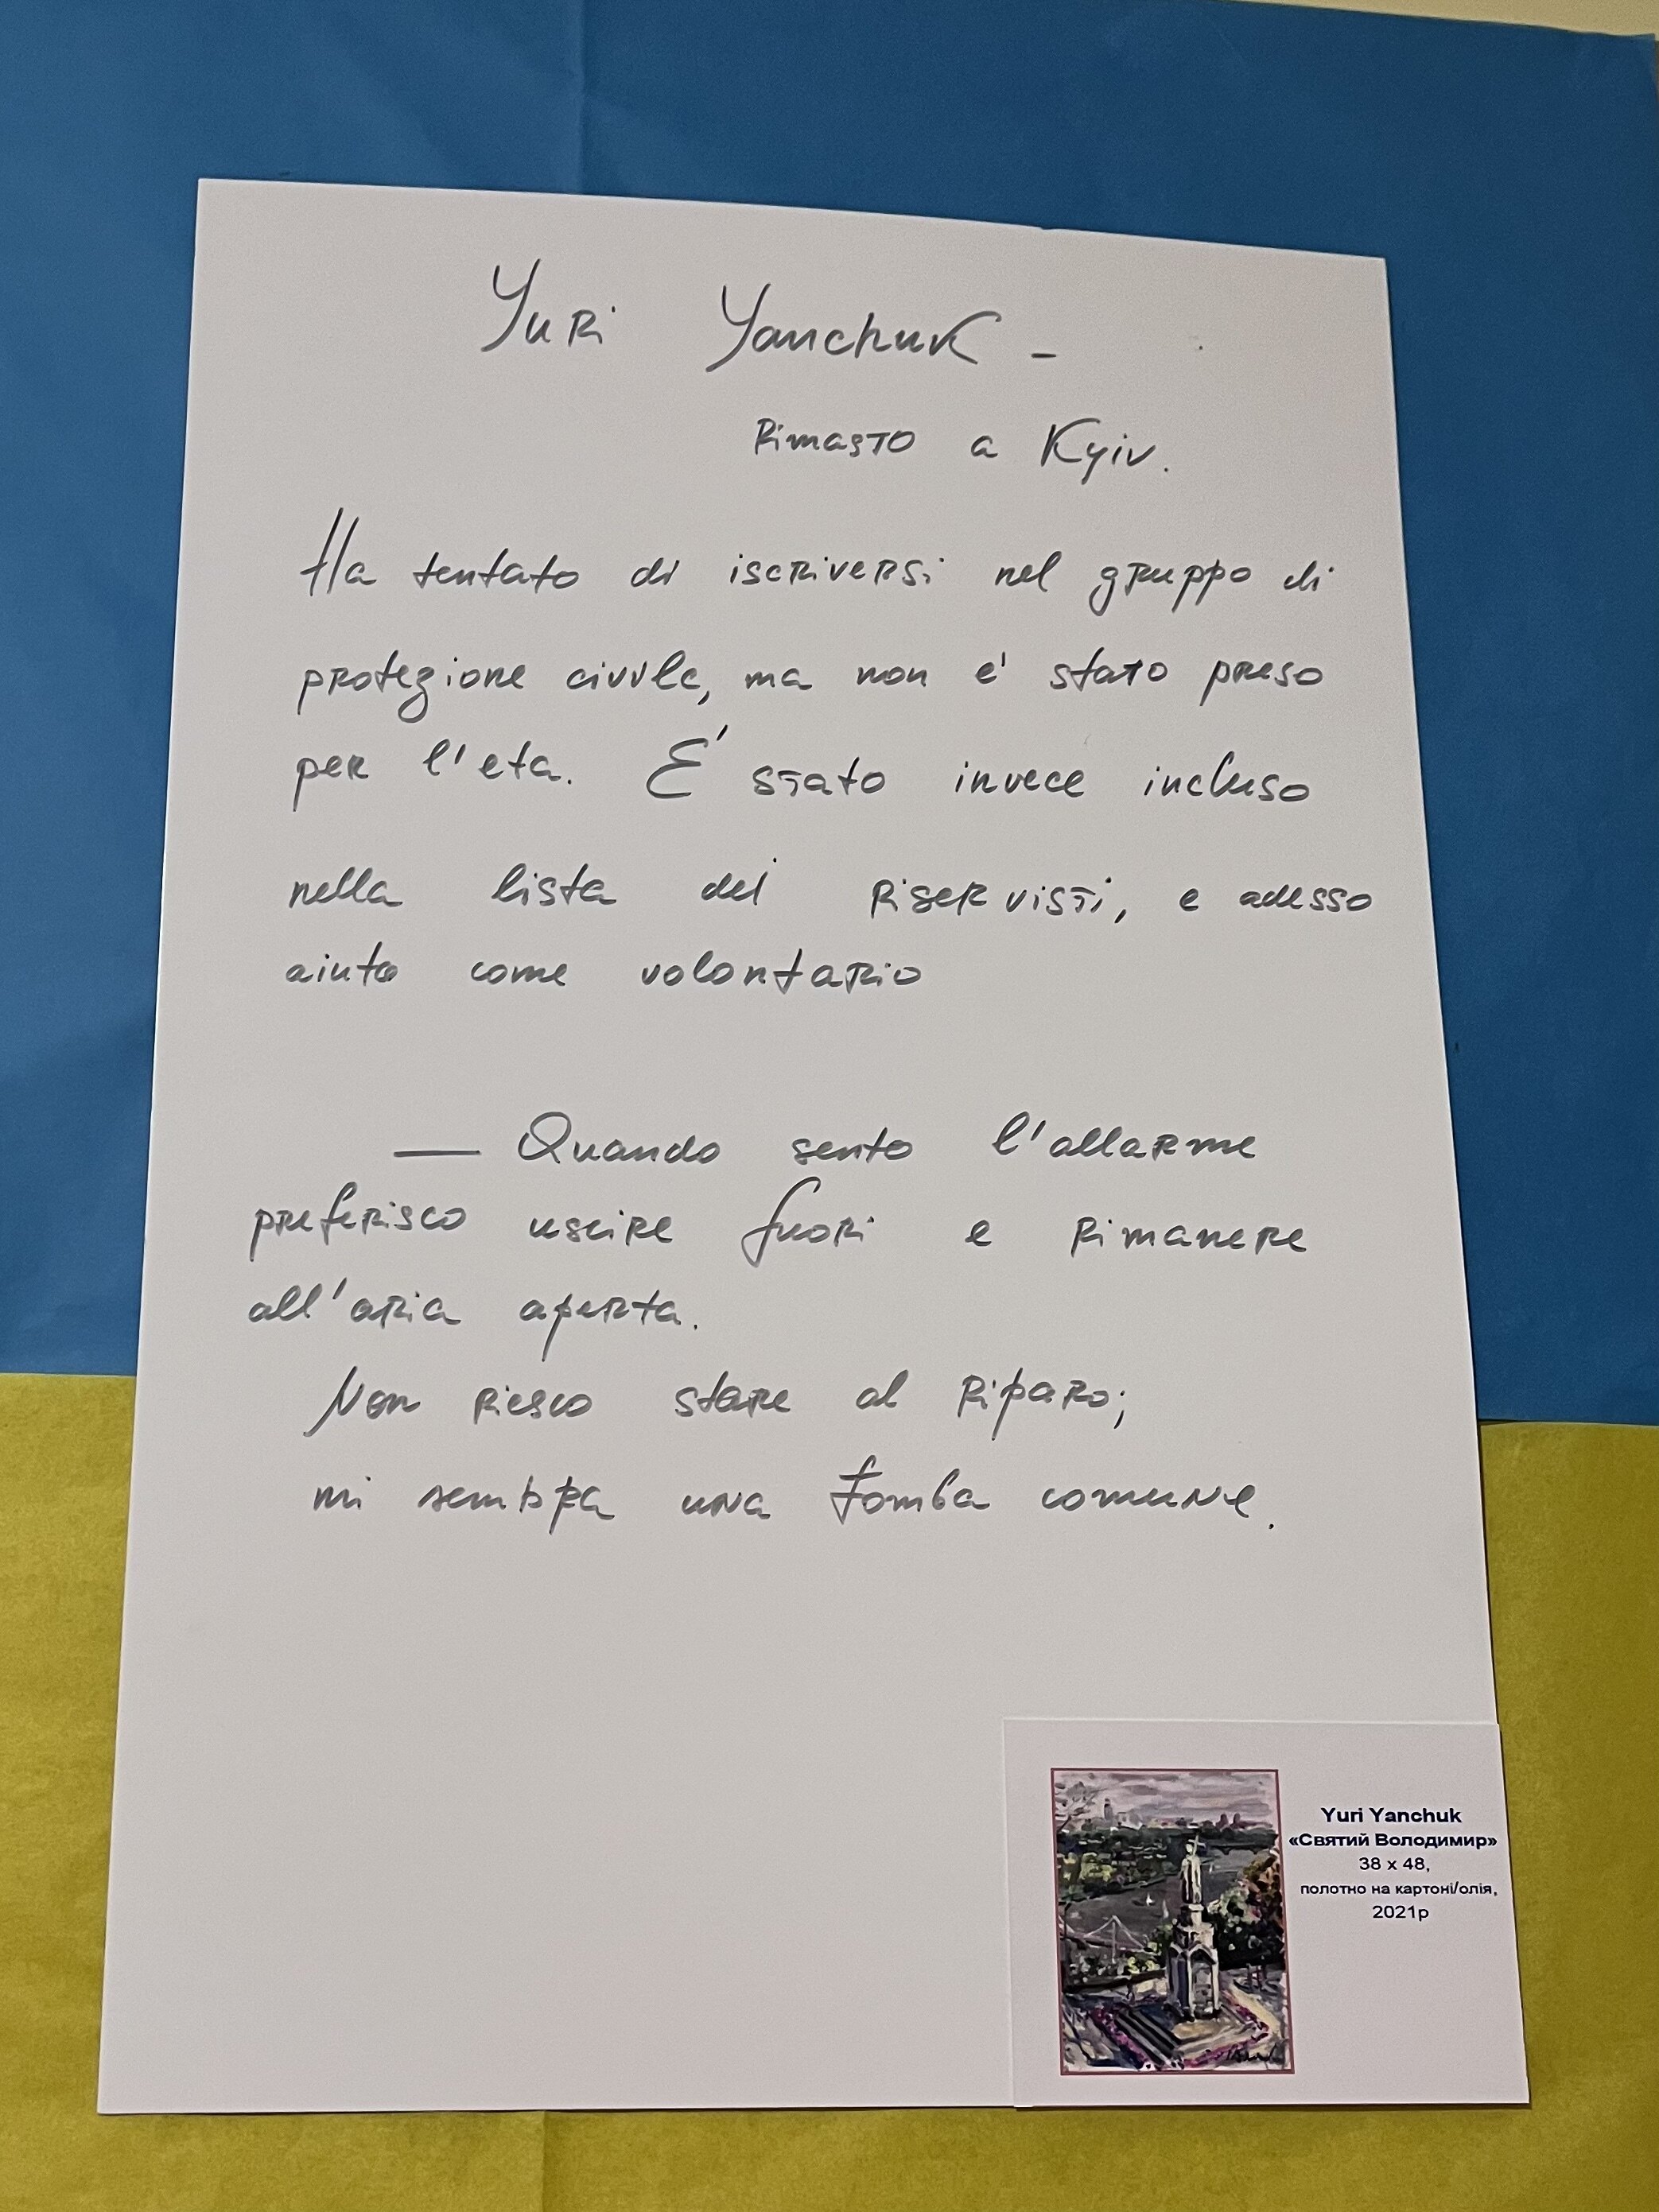 Yuri Yanchuk -
Rimasto a Kyiv.
Ha tentato di iscriversi nel gruppo di
protezione civile, ma non e' stato preso
per l'eta. E' stato invece incluso
nella lista dei riservisti, e adesso
aiuta come volontario
— Quando sento l'allarme
preferisco uscire fuori e rimanere
all'aria aperta.
Non riesco stare al riparo;
mi sembra una tomba comune.
Yuri Yanchuk
«Святий Володимир»
38 x 48,
полотно на картоні/олія,
2021р